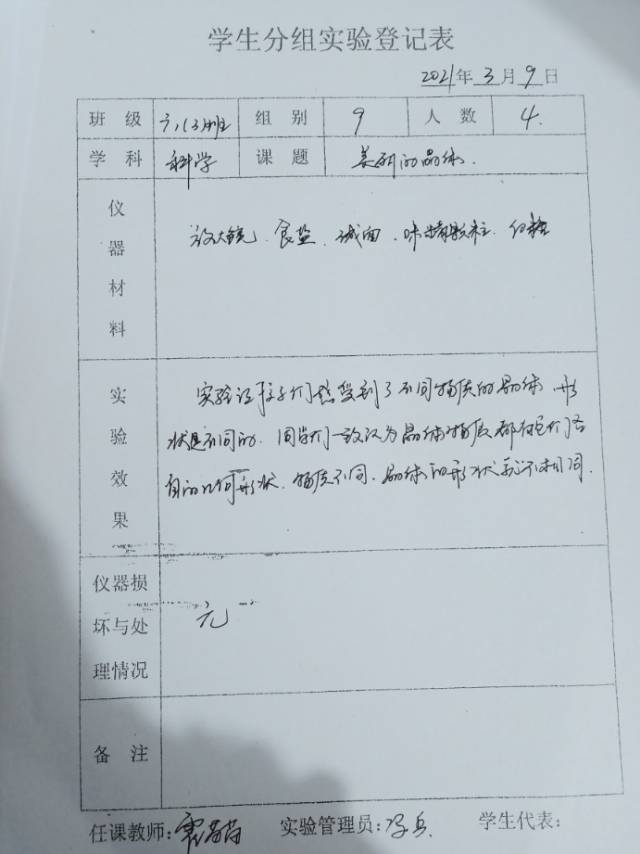 学生分组实验登记表
2021年3月9日
班级 六(3)班 组别 9 人数 4.
学科 科学 课题 美丽的晶体.
仪器材料
放大镜、食盐、碱面、味精颗粒、白糖
实验效果
实验让孩子们感受到了不同物质的晶体形
状是不同的.同学们一致认为晶体物质都有它们各
自的几何形状.物质不同.晶体的形状就不相同.
仪器损坏与处理情况
无
备注
任课教师: 实验管理员:冯兵 学生代表: